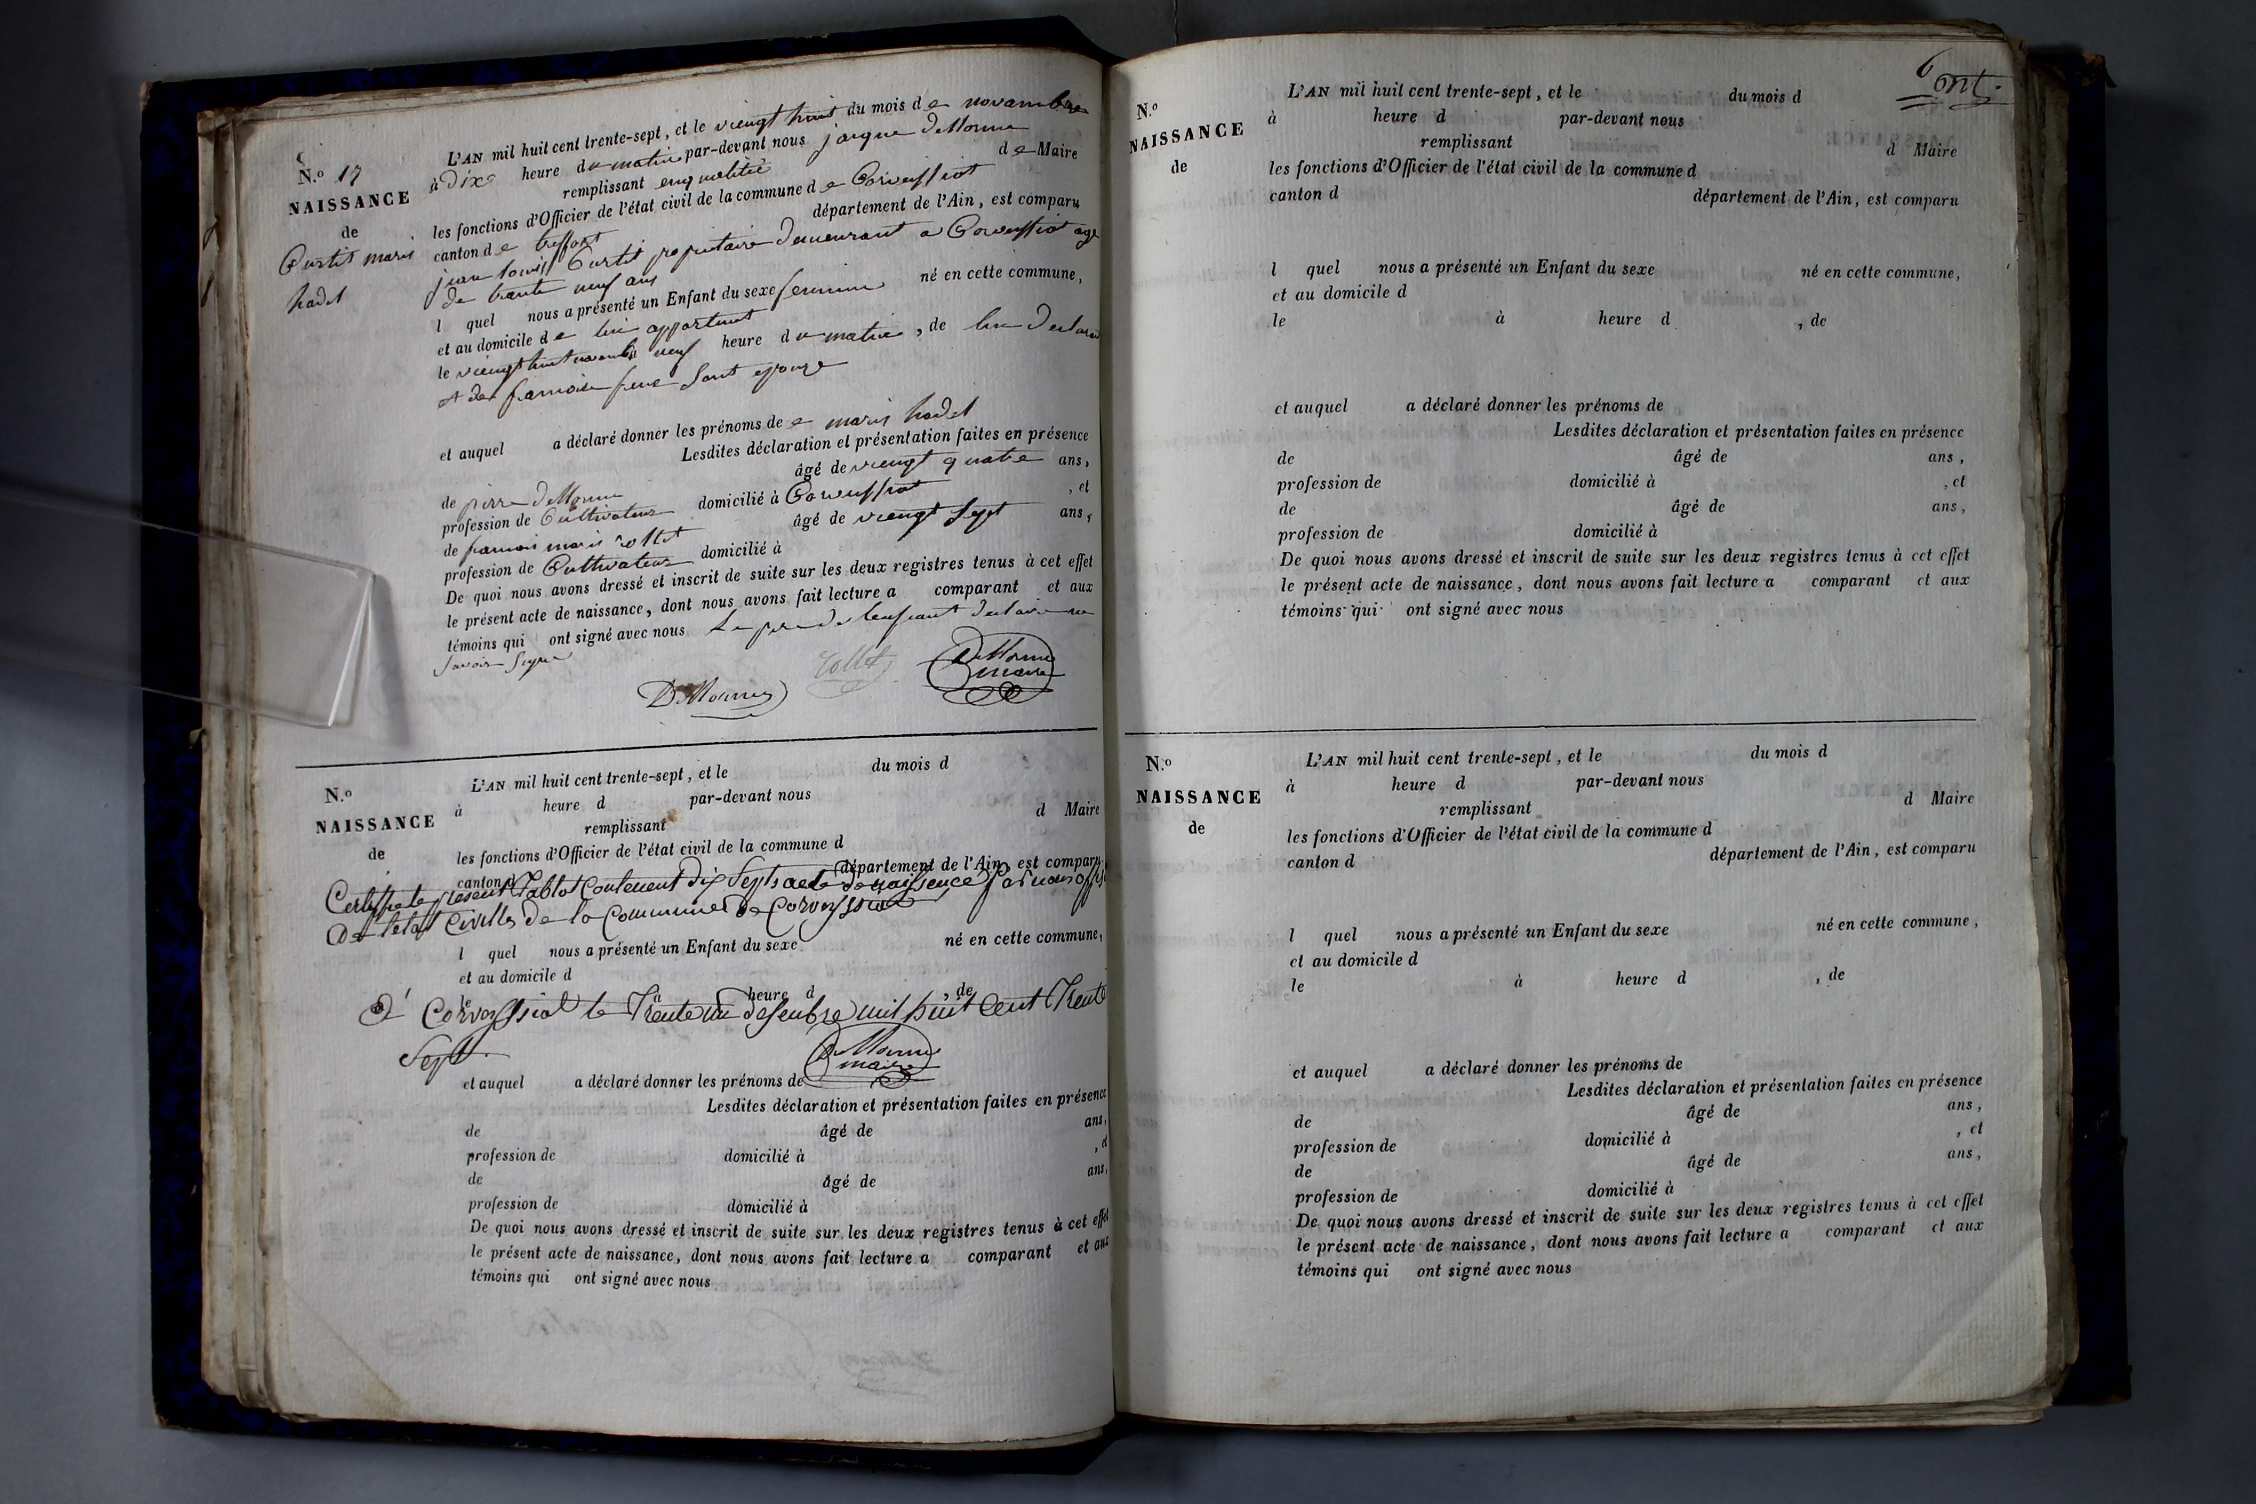 N.º 17
NAISSANCE
de
Curtit marie
hadel
L'AN mil huit cent trente-sept, et le viengt huit du mois de novambre
à dix heure du matin par-devant nous jacque deMornu
remplissant enqualitée de Maire
les fonctions d'Officier de l'état civil de la commune de Corveissiat
canton de treffort département de l'Ain, est comparu
jean louis Curtit propriétaire demeurant a Corveissiat agé
de trante neuf ans
l quel nous a présenté un Enfant du sexe feminin né en cette commune,
et au domicile de lui appartenent
le viengt huit novambre neuf heure du matin, de lui declarent
et de francoise sont epouze
et auquel a déclaré donner les prénoms de marie hadel
Lesdites déclaration et présentation faites en présence
de pierre deMornu âgé de viengt quatre ans,
profession de Cultivateur domicilié à Corveissiat, et
de francois marie rollet âgé de viengt sept ans,
profession de Cultivateur domicilié à
De quoi nous avons dressé et inscrit de suite sur les deux registres tenus à cet effet
le présent acte de naissance, dont nous avons fait lecture a comparant et aux
témoins qui ont signé avec nous Le pere de lenfant declare ne
savoir signe
DeMornu rollet DeMornu
maire
N.º
NAISSANCE
de
L'AN mil huit cent trente-sept, et le du mois d
à heure d par-devant nous
remplissant d Maire
les fonctions d'Officier de l'état civil de la commune d
canton d département de l'Ain, est comparu
Certiffie le présent Tablot contenent dix Septs acte de naissence par nous
De l'état Civille de la Commune de Corveyssiat
l quel nous a présenté un Enfant du sexe né en cette commune,
et au domicile d
le à heure d , de
A Corveyssiat le Trente un desenbre mil huit Cent Trente
Sept.
DeMornu
maire
et auquel a déclaré donner les prénoms de
Lesdites déclaration et présentation faites en présence
de âgé de ans,
profession de domicilié à , et
de âgé de ans,
profession de domicilié à
De quoi nous avons dressé et inscrit de suite sur les deux registres tenus à cet effet
le présent acte de naissance, dont nous avons fait lecture a comparant et aux
témoins qui ont signé avec nous
N.º
NAISSANCE
de
L'AN mil huit cent trente-sept, et le du mois d
à heure d par-devant nous
remplissant d Maire
les fonctions d'Officier de l'état civil de la commune d
canton d département de l'Ain, est comparu
l quel nous a présenté un Enfant du sexe né en cette commune,
et au domicile d
le à heure d , de
et auquel a déclaré donner les prénoms de
Lesdites déclaration et présentation faites en présence
de âgé de ans,
profession de domicilié à , et
de âgé de ans,
profession de domicilié à
De quoi nous avons dressé et inscrit de suite sur les deux registres tenus à cet effet
le présent acte de naissance, dont nous avons fait lecture a comparant et aux
témoins qui ont signé avec nous
N.º
NAISSANCE
de
L'AN mil huit cent trente-sept, et le du mois d
à heure d par-devant nous
remplissant d Maire
les fonctions d'Officier de l'état civil de la commune d
canton d département de l'Ain, est comparu
l quel nous a présenté un Enfant du sexe né en cette commune,
et au domicile d
le à heure d , de
et auquel a déclaré donner les prénoms de
Lesdites déclaration et présentation faites en présence
de âgé de ans,
profession de domicilié à , et
de âgé de ans,
profession de domicilié à
De quoi nous avons dressé et inscrit de suite sur les deux registres tenus à cet effet
le présent acte de naissance, dont nous avons fait lecture a comparant et aux
témoins qui ont signé avec nous